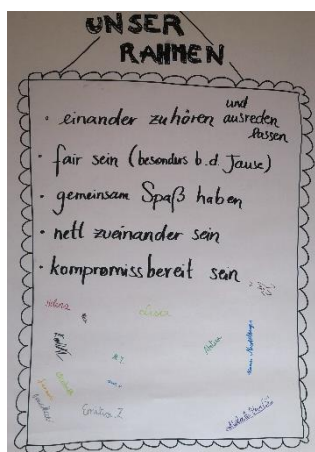 UNSER
RAHMEN
• einander zuhören und ausreden lassen
• fair sein (besonders b.d. Jause)
• gemeinsam Spaß haben
• nett zueinander sein
• kompromissbereit sein